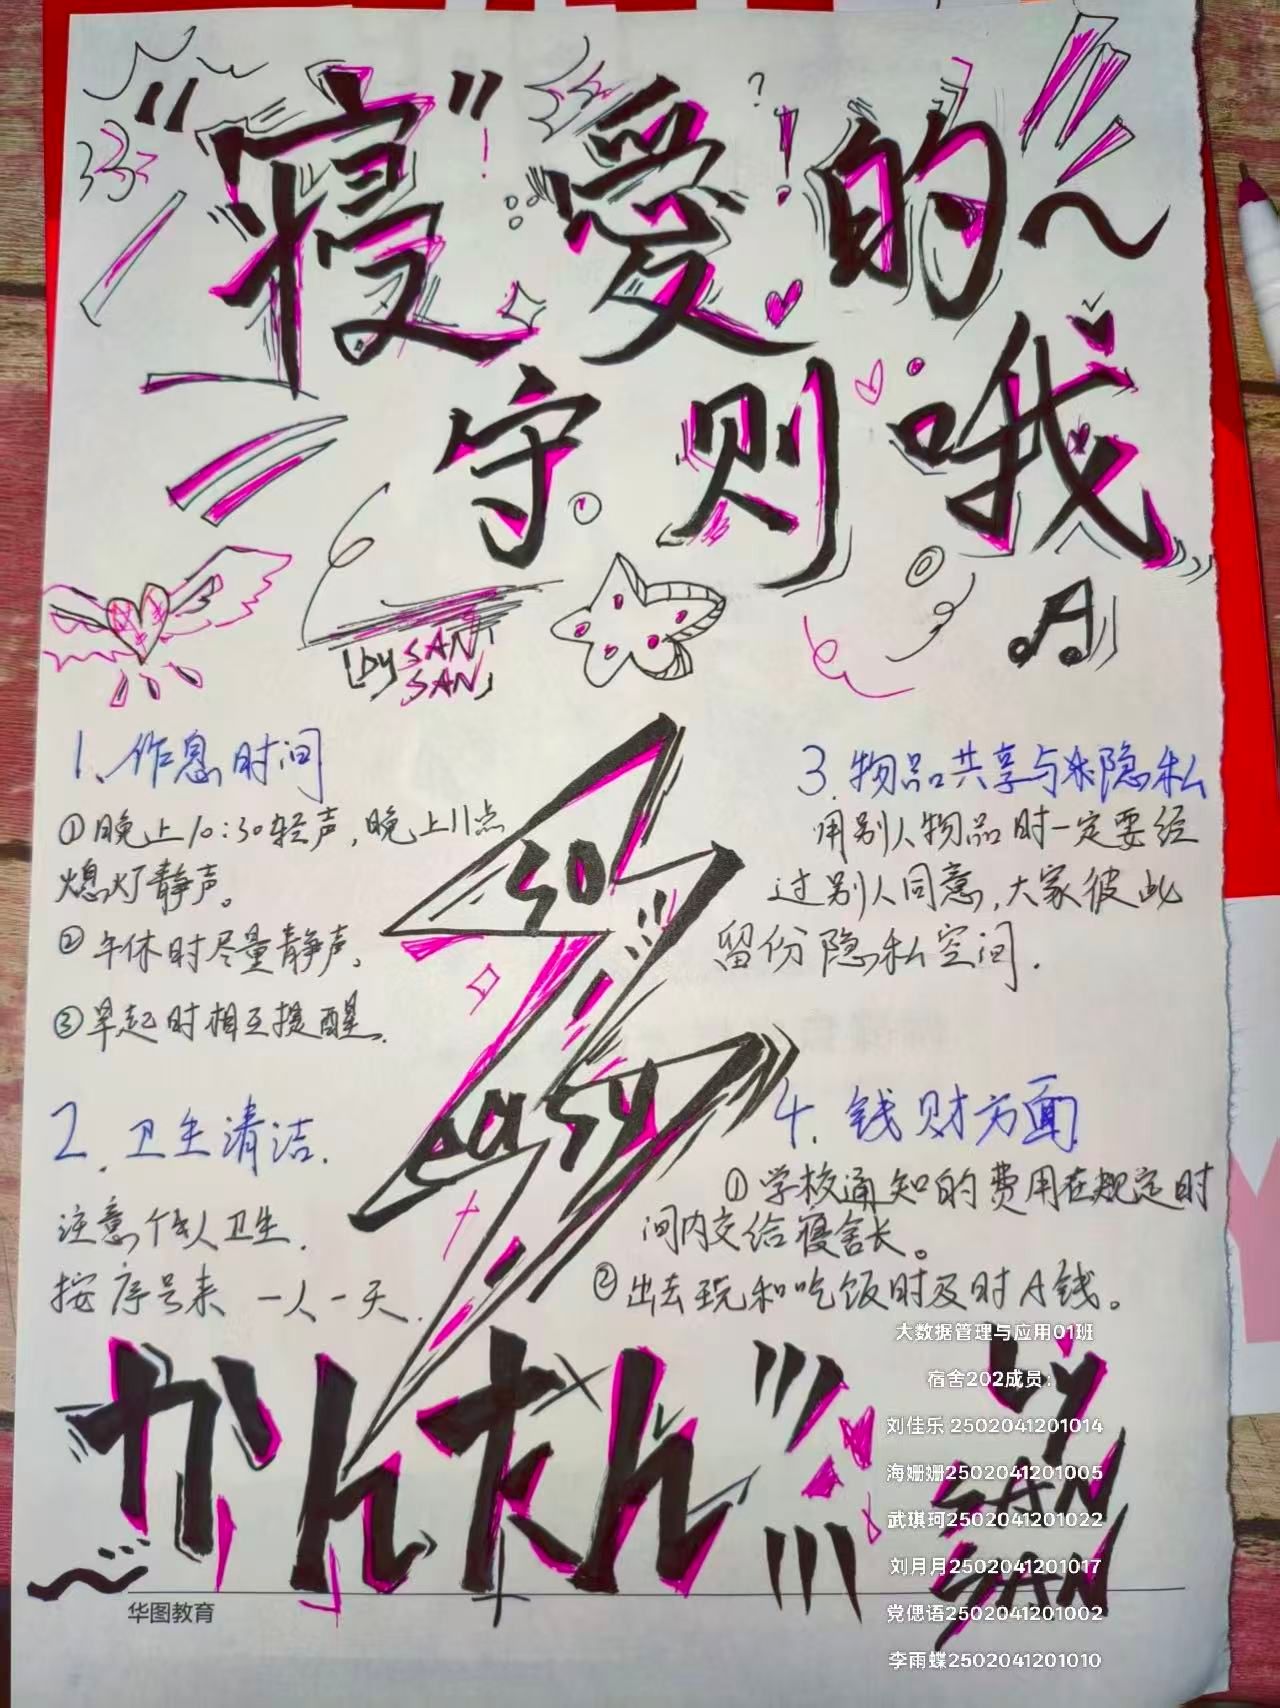 "寝"爱的~
守则哦
[by SAN
SAN]
1、作息时间
①晚上10:30轻声,晚上11点
熄灯静声。
②午休时尽量静声。
③早起时相互提醒.
2.卫生清洁.
注意个人卫生.
按序号来 一人一天.
so
easy
3.物品共享与隐私
用别人物品时一定要经
过别人同意,大家彼此
留份隐私空间.
4.钱财方面
①学校通知的费用在规定时
间内交给寝舍长。
②出去玩和吃饭时及时A钱。
かんたん
by
SAN
SAN
华图教育
大数据管理与应用01班
宿舍202成员:
刘佳乐 2502041201014
海姗姗2502041201005
武琪珂2502041201022
刘月月2502041201017
党偲语2502041201002
李雨蝶2502041201010